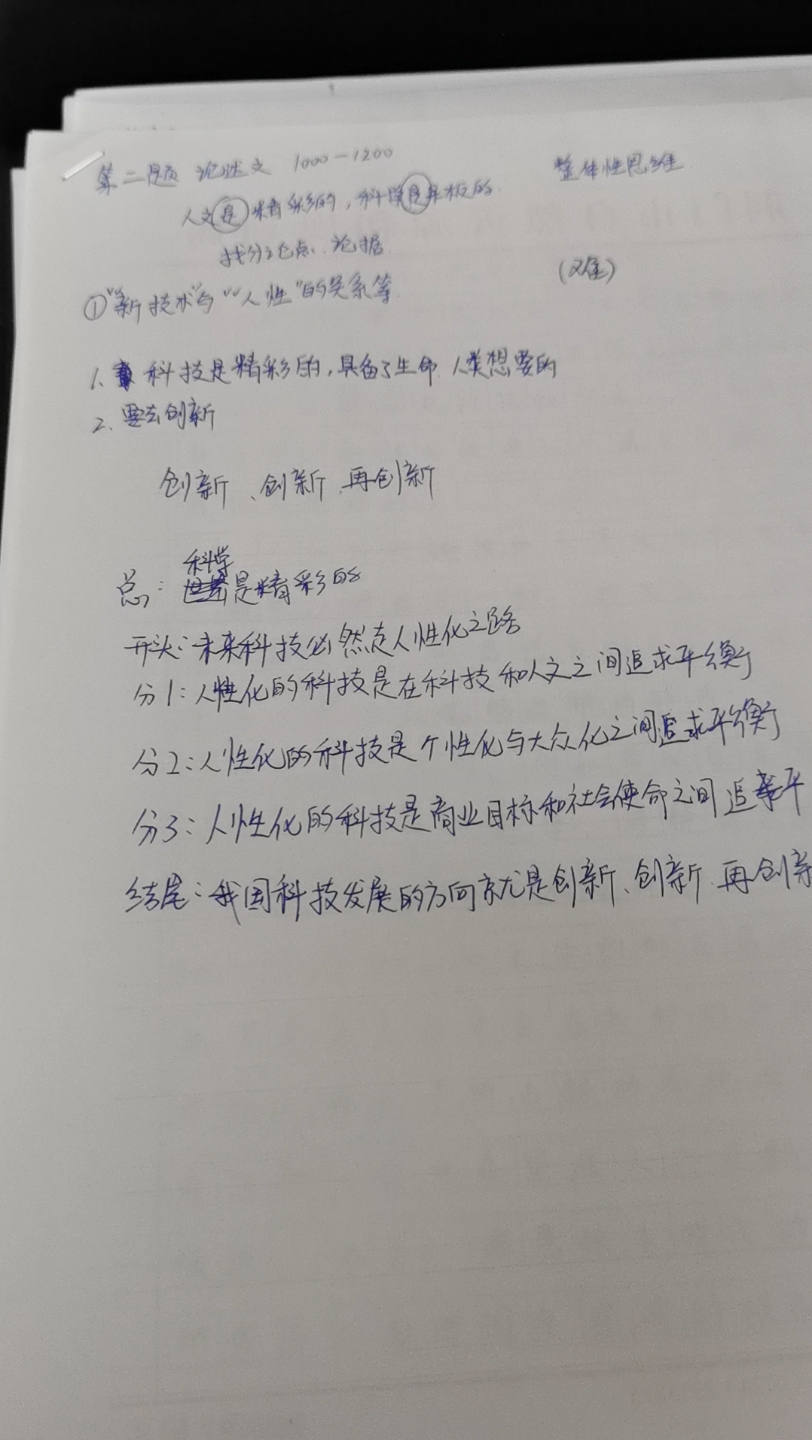 第二题 论述文 1000-1200 整体性思维
人文是精彩的，科学是呆板的
找分论点、论据
(难)
①"新技术"与"人性"的关系等
1. 科技是精彩的，具备了生命 人类想要的
2. 要去创新
创新、创新、再创新
总：科学是精彩的
开头：未来科技必然走人性化之路
分1：人性化的科技是在科技和人文之间追求平衡
分2：人性化的科技是个性化与大众化之间追求平衡
分3：人性化的科技是商业目标和社会使命之间追求平
结尾：我国科技发展的方向就是创新、创新、再创新